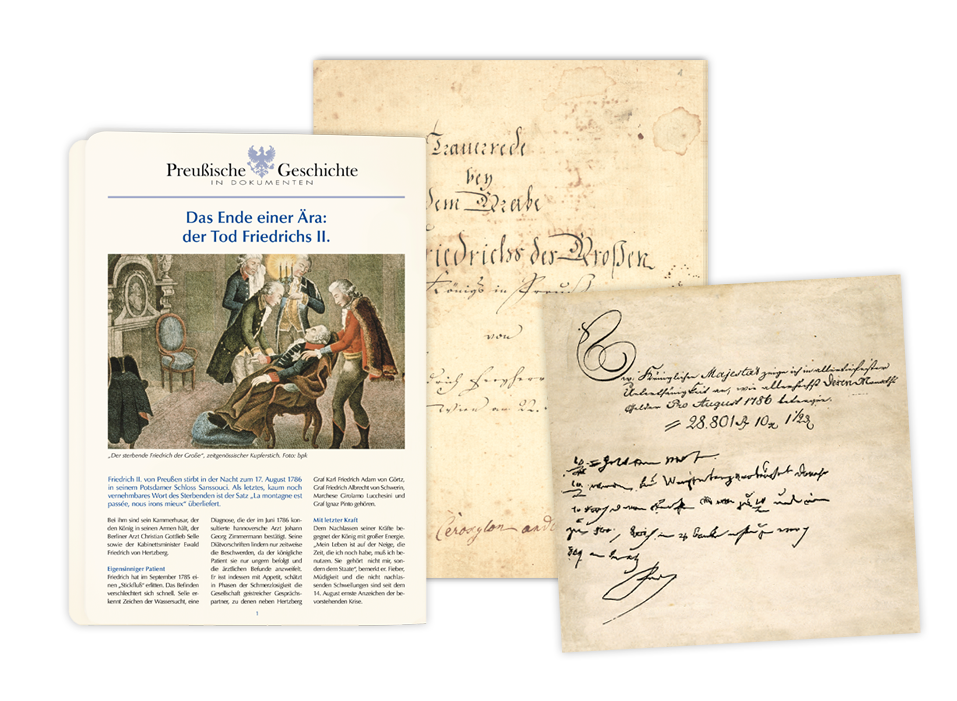 Preußische Geschichte
IN DOKUMENTEN
Das Ende einer Ära:
der Tod Friedrichs II.
„Der sterbende Friedrich der Große“, zeitgenössischer Kupferstich. Foto: bpk
Friedrich II. von Preußen stirbt in der Nacht zum 17. August 1786
in seinem Potsdamer Schloss Sanssouci. Als letztes, kaum noch
vernehmbares Wort des Sterbenden ist der Satz „La montagne est
passée, nous irons mieux“ überliefert.
Bei ihm sind sein Kammerhusar, der
den König in seinen Armen hält, der
Berliner Arzt Christian Gottlieb Selle
sowie der Kabinettsminister Ewald
Friedrich von Hertzberg.
Eigensinniger Patient
Friedrich hat im September 1785 ei-
nen „Stickfluß“ erlitten. Das Befinden
verschlechtert sich schnell. Selle er-
kennt Zeichen der Wassersucht, eine
Diagnose, die der im Juni 1786 kon-
sultierte hannoversche Arzt Johann
Georg Zimmermann bestätigt. Seine
Diätvorschriften lindern nur zeitweise
die Beschwerden, da der königliche
Patient sie nur ungern befolgt und
die ärztlichen Befunde anzweifelt.
Er isst indessen mit Appetit, schätzt
in Phasen der Schmerzlosigkeit die
Gesellschaft geistreicher Gesprächs-
partner, zu denen neben Hertzberg
Graf Karl Friedrich Adam von Görtz,
Graf Friedrich Albrecht von Schwerin,
Marchese Girolamo Lucchesini und
Graf Ignaz Pinto gehören.
Mit letzter Kraft
Dem Nachlassen seiner Kräfte be-
gegnet der König mit großer Energie.
„Mein Leben ist auf der Neige, die
Zeit, die ich noch habe, muß ich be-
nutzen. Sie gehört nicht mir, son-
dern dem Staate“, bemerkt er. Fieber,
Müdigkeit und die nicht nachlas-
senden Schwellungen sind seit dem
14. August ernste Anzeichen der be-
vorstehenden Krise.
1
Trauerrede
bey
dem Grabe
Friedrichs des Großen
Königs in
von
Königlichen Majestät zeige ich in
an, wie
Pro August 1786
28.801